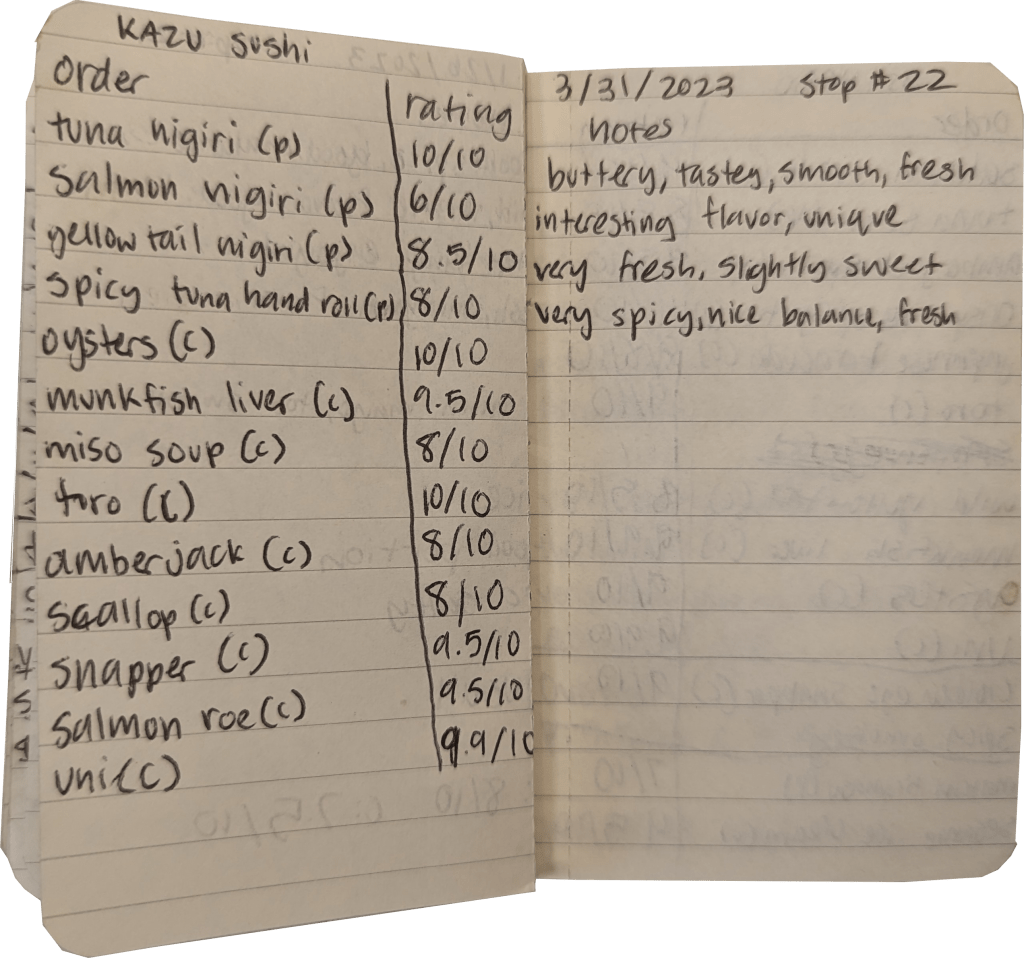 KAZU Sushi
Order rating
tuna nigiri (p) 10/10
Salmon nigiri (p) 6/10
yellow tail nigiri (p) 8.5/10
Spicy tuna hand roll (p) 8/10
oysters (c) 10/10
munkfish liver (c) 9.5/10
miso soup (c) 8/10
toro (c) 10/10
amberjack (c) 8/10
scallop (c) 8/10
snapper (c) 9.5/10
salmon roe (c) 9.5/10
uni (c) 9.9/10
3/31/2023 Stop #22
notes
buttery, tastey, smooth, fresh
interesting flavor, unique
very fresh, slightly sweet
very spicy, nice balance, fresh